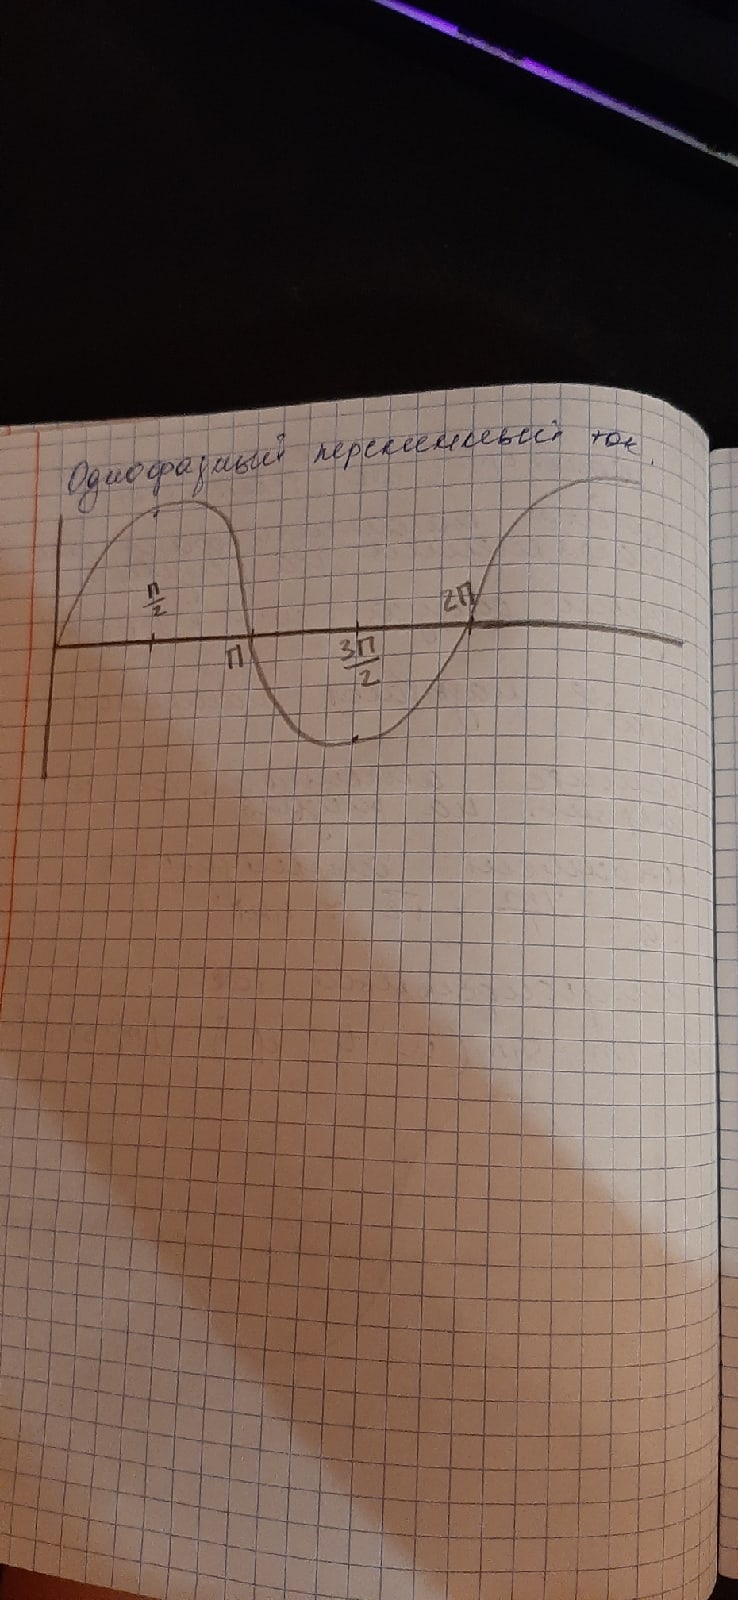 Однофазный переменный ток.
П/2
2П
П
3П/2